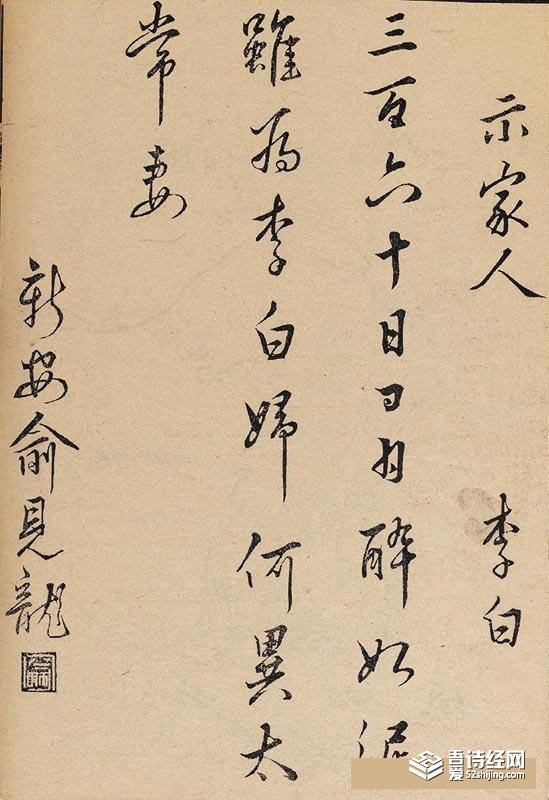 示家人 李白
三百六十日日日醉如泥
雖為李白婦何異太
常妻
新安俞見龍
吾爱诗经网
52shijing.com